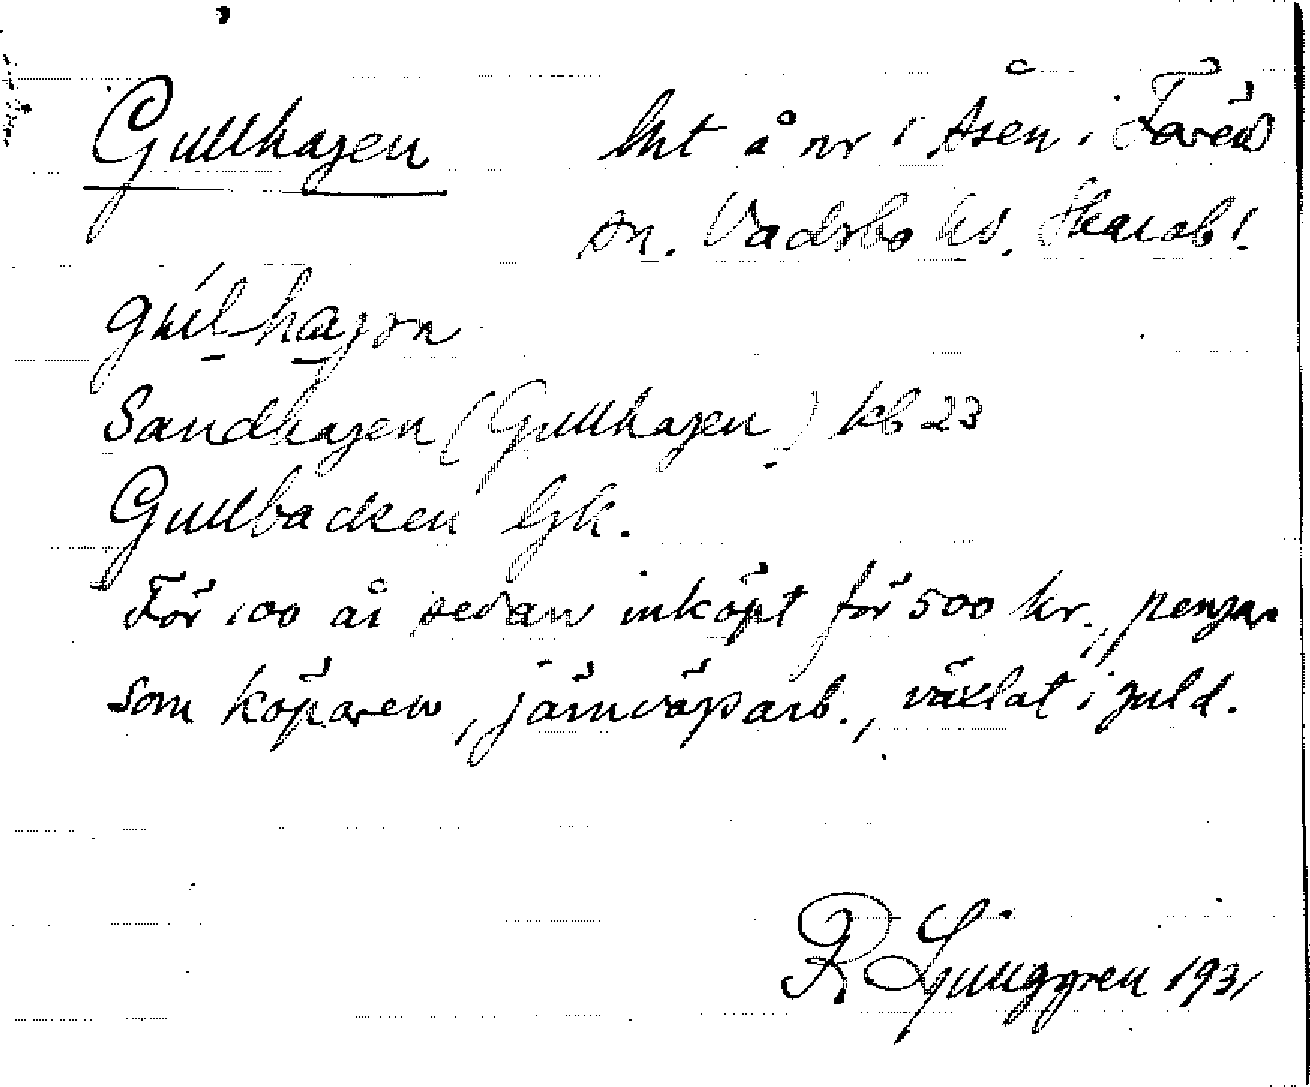 Gullhagen lht å nr 1 Åsen i Färed
sn. Vadsbo hd. Skarab l.
gul-hagən
Sandhagen (Gullhagen) kb 23
Gullbacken Gk.
För 100 år sedan inköpt för 500 kr., pengar
som köparen, järnvägsarb., växlat i guld.
R Ljunggren 1931